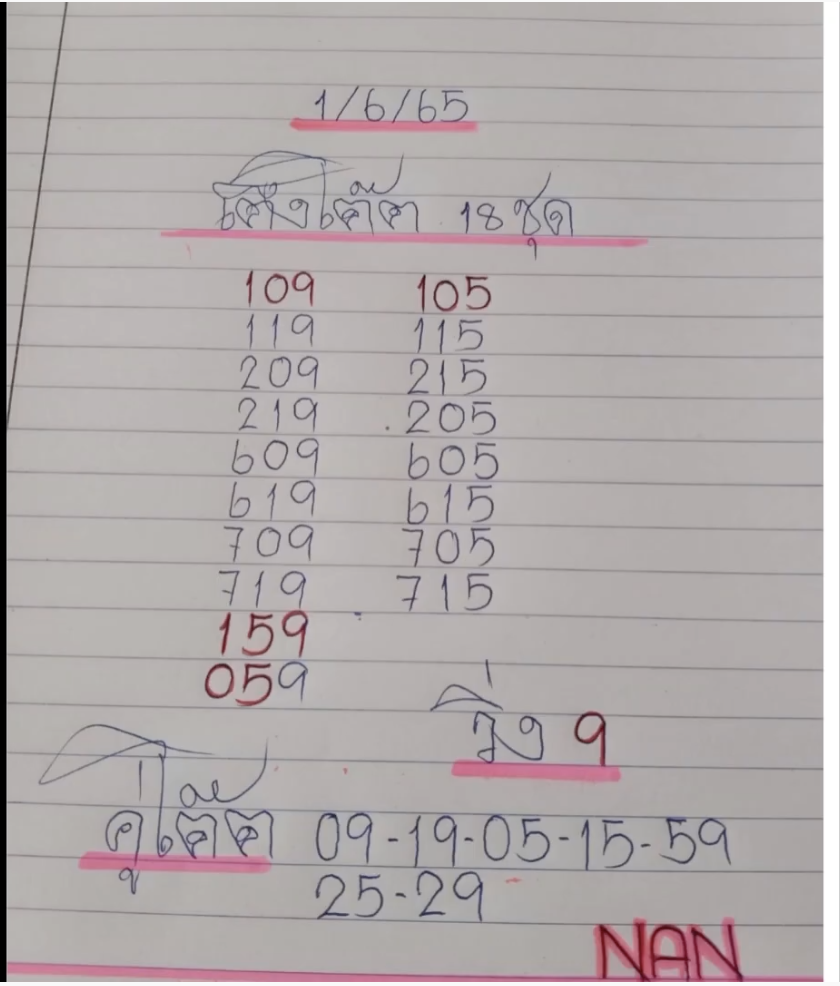 1/6/65
เต็งโต๊ด 18 ชุด
109 105
119 115
209 215
219 205
609 605
619 615
709 705
719 715
159
059
วิ่ง 9
คู่โต๊ด 09-19-05-15-59
25-29
NAN